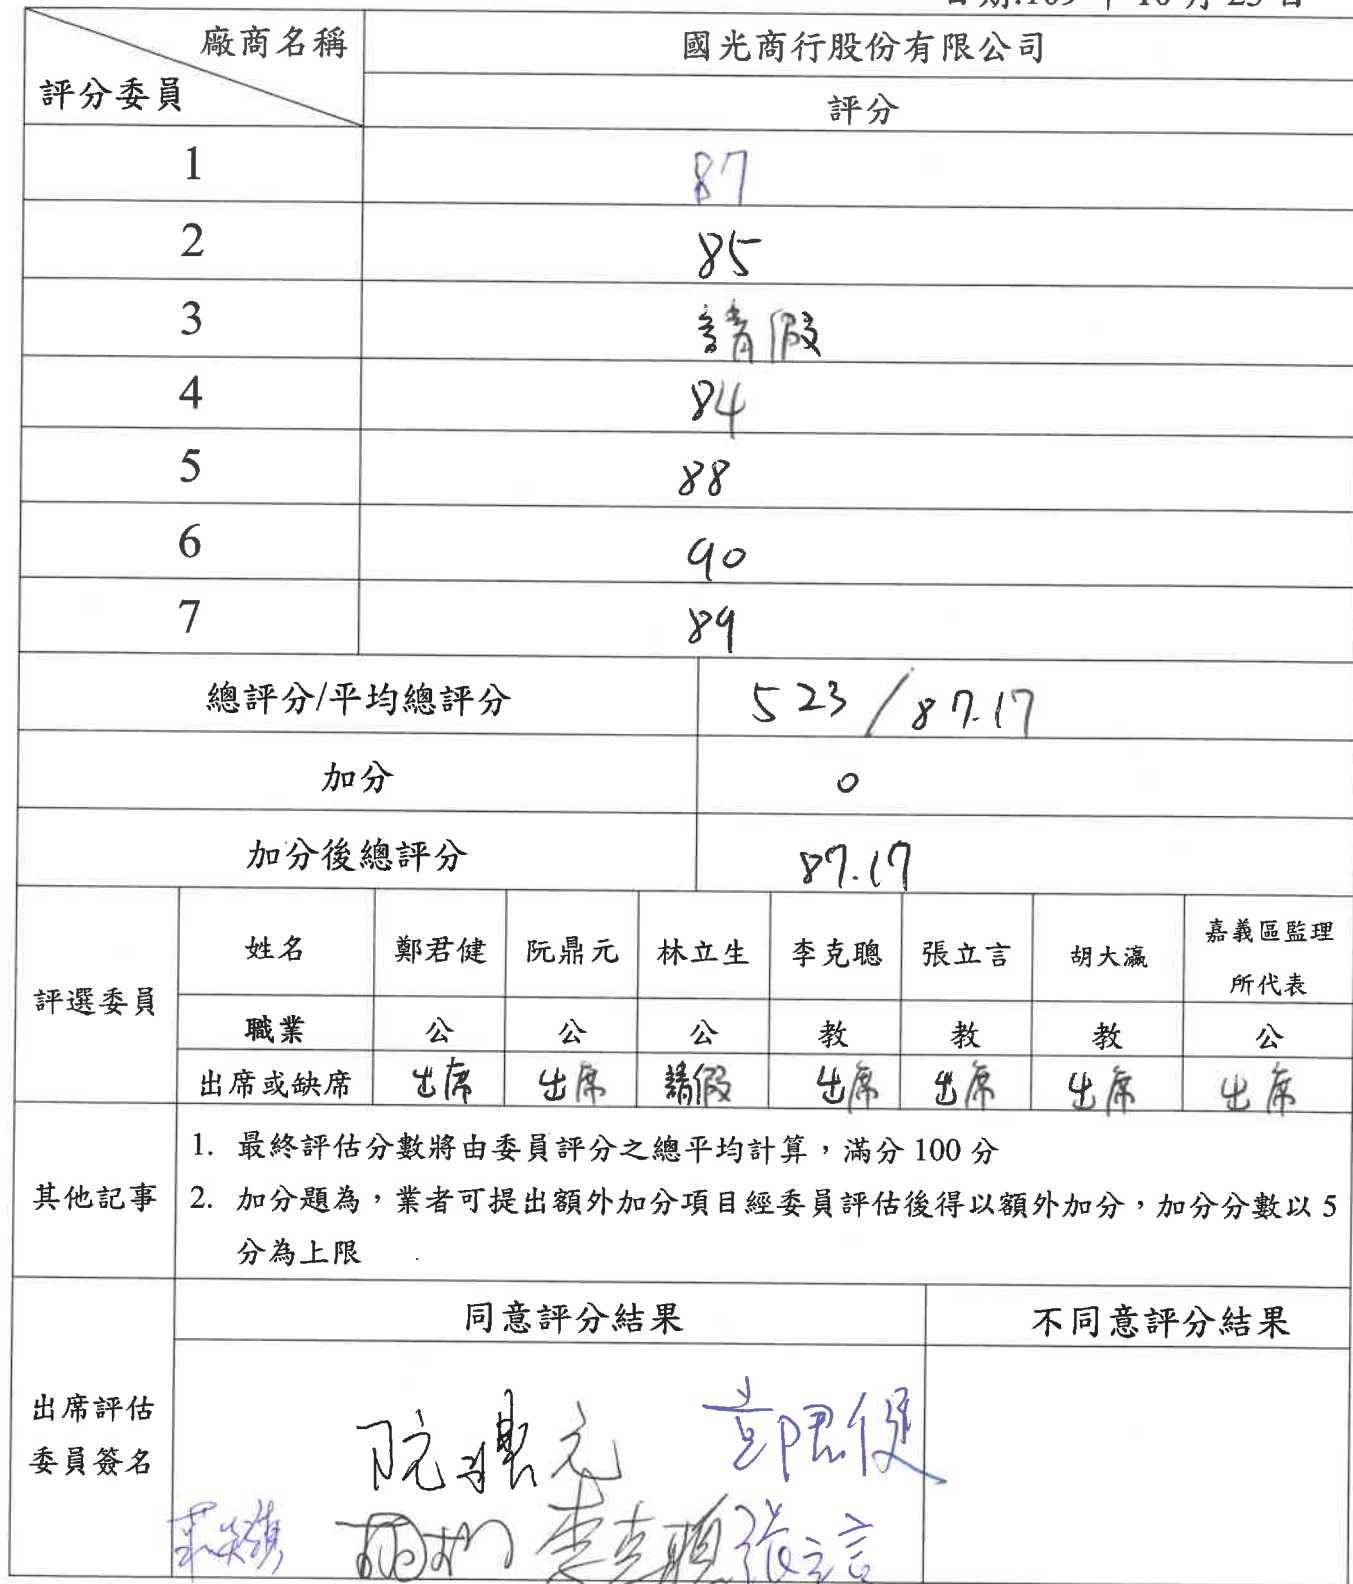 廠商名稱
國光商行股份有限公司
評分委員
評分
1 87
2 85
3 請假
4 84
5 88
6 90
7 89
總評分/平均總評分 523/87.17
加分 0
加分後總評分 87.17
評選委員
姓名 鄭君健 阮鼎元 林立生 李克聰 張立言 胡大瀛 嘉義區監理所代表
職業 公 公 公 教 教 教 公
出席或缺席 出席 出席 請假 出席 出席 出席 出席
其他記事
1. 最終評估分數將由委員評分之總平均計算，滿分 100 分
2. 加分題為，業者可提出額外加分項目經委員評估後得以額外加分，加分分數以 5
分為上限
同意評分結果 不同意評分結果
出席評估
委員簽名
阮鼎元 鄭君健
李克聰 張立言